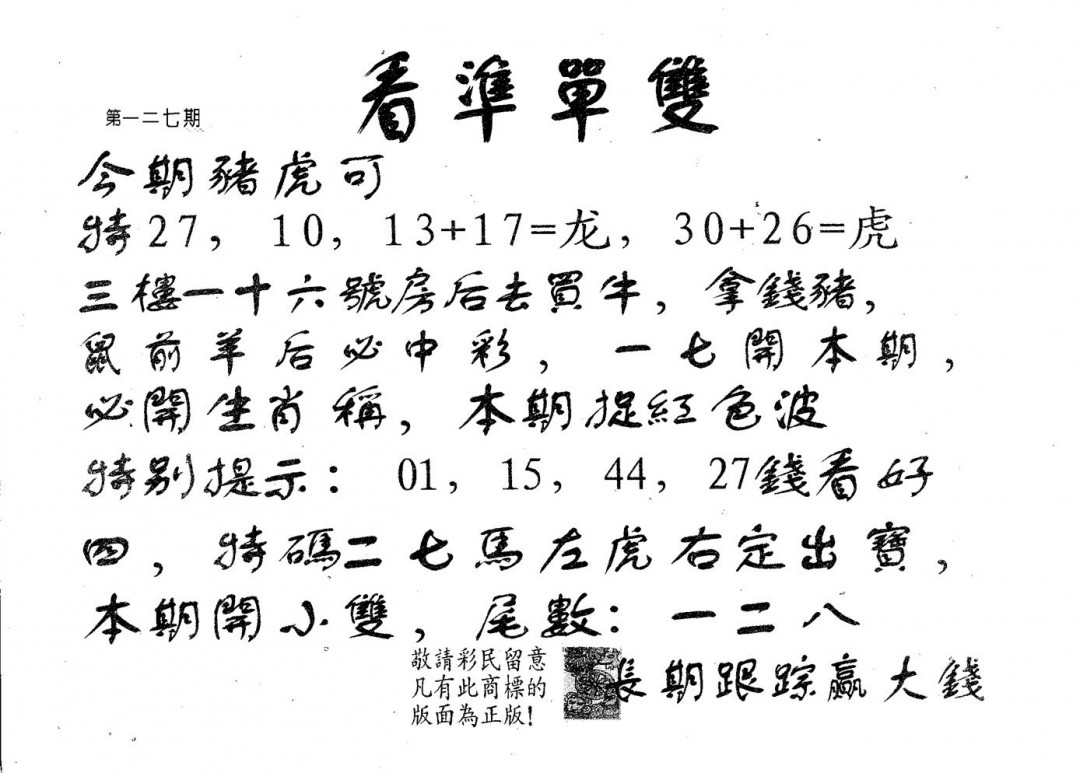 看準單雙
第一二七期
今期豬虎可
特27，10，13+17=龙，30+26=虎
三樓一十六號房后去買牛，拿錢豬，
鼠前羊后必中彩，一七開本期，
必開生肖稱，本期捉紅色波
特别提示：01，15，44，27錢看好
四，特碼二七馬左虎右定出寶，
本期開小雙，尾數：一二八
敬請彩民留意
凡有此商標的
版面為正版！
長期跟踪贏大錢